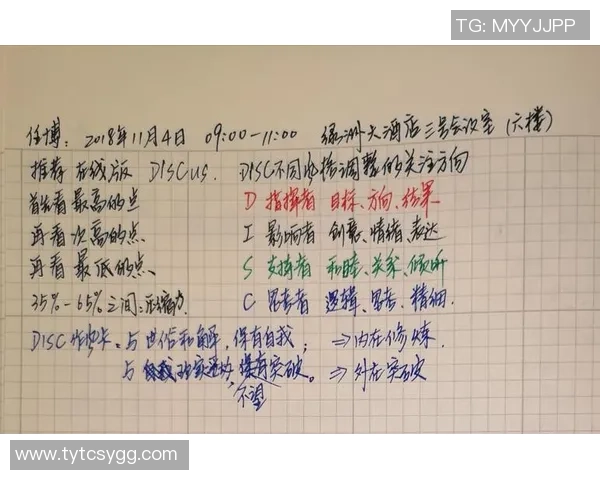 TG: MYYJJPP
任博: 2018年11月4日 09:00-11:00 绿洲大酒店三号会议室 (六楼)
推荐 在线版 DISCus. DISC不同性格调整的关注方向
首先看最高的点 D 指挥者 目标、方向、结果
再看次高的点 I 影响者 创意、情绪、表达
再看最低的点 S 支持者 和睦、关系、倾听
35%-65%之间: C 思考者 逻辑、思考、精细.
DISC 与世俗和解, 保有自我; ⇒内在修炼
与 突破。 ⇒外在突破
不望
www.tytcsygg.com